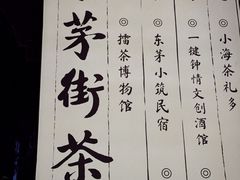 ◎小海茶礼多
◎一键钟情文创酒馆
◎东茅小筑民宿
◎擂茶博物馆
茅街茶